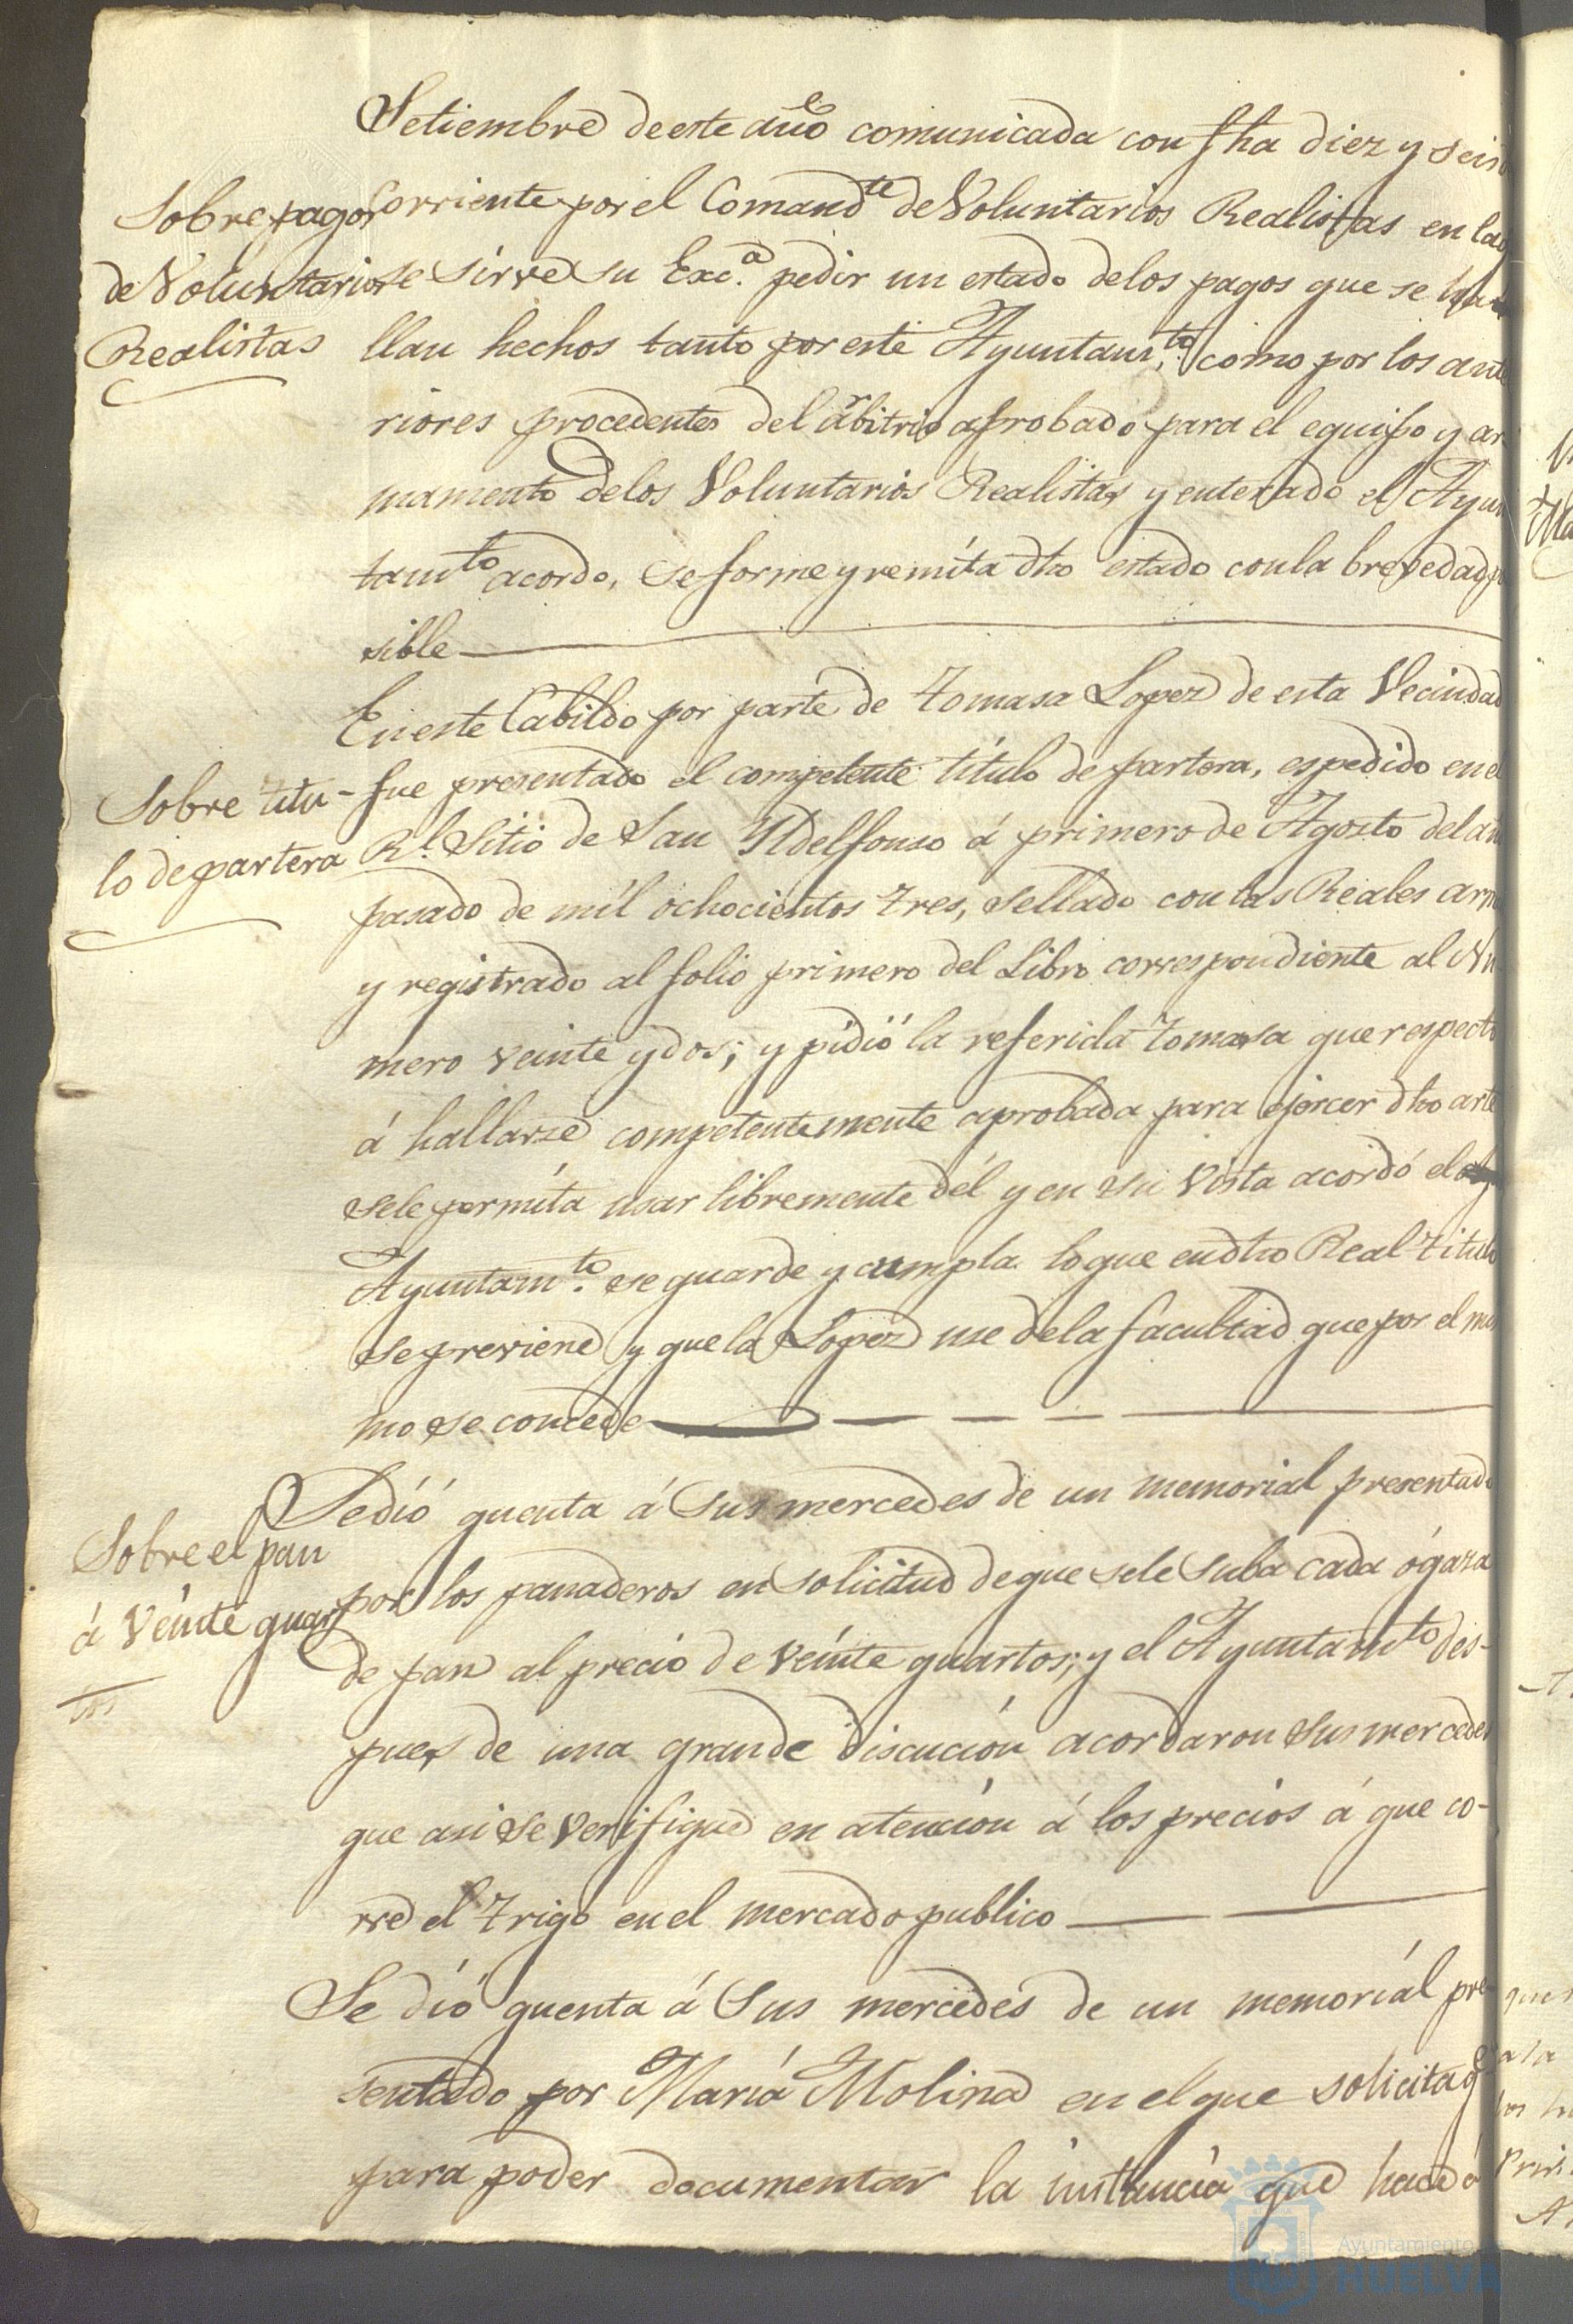 Setiembre de este año comunicada con fha diez y seis
Sobre pagos
de Voluntarios
Realistas
Corriente por el Comandte de Voluntarios Realistas en la q
se sirve su Exca. pedir un estado de los pagos que se ha
llan hechos tanto por este Ayuntamto. como por los ante
riores procedentes del arbitrio aprobado para el equipo y ar
mamento delos Voluntarios Realistas y enterado el Ayun
tamto acordo, se forme y remita dho estado con la brevedad po
sible
En este Cabildo por parte de Tomasa Lopez de esta Vecindad
Sobre titu-
lo de partera
fue presentado el competente titulo de partera, espedido en el
Rl. Sitio de San Yldelfonso á primero de Agosto del año
pasado de mil ochocientos tres, sellado con las Reales arm
y registrado al folio primero del Libro correspondiente al Nu
mero veinte y dos; y pidió la referida Tomasa que respecto
á hallarse competentemente aprobada para ejercer dho arte
sele permita usar libremente dél y en su vista acordó el
Ayuntamto. se guarde y cumpla lo que en dho Real titulo
se previene y que la Lopez use dela facultad que por el mis
mo se concede
Se dió quenta á Sus mercedes de un memorial presentado
Sobre el pan
á veinte quar
tos
por los panaderos en solicitud de que sele suba cada ógaza
de pan al precio de veinte quartos; y el Ayuntamto des-
pues de una grande discucion acordaron sus mercedes
que asi se verifique en atencion á los precios á que co-
rre el trigo en el mercado publico
Se dió quenta á Sus mercedes de un memorial pre
sentado por María Molina en el que solicita q
para poder documentar la instancia que hace á
Ayuntamiento de
HUELVA